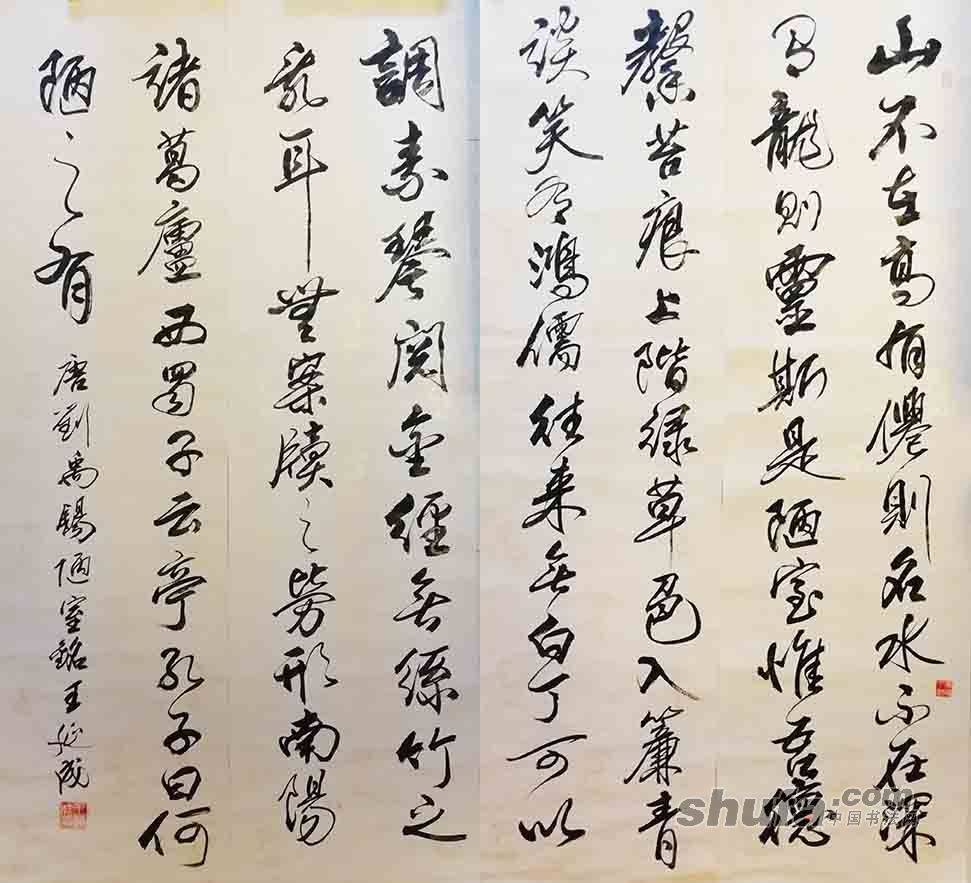 山不在高有僊則名水不在深
有龍則靈斯是陋室惟吾德
馨苔痕上階緑草色入簾青
談笑有鴻儒往来無白丁可以
調素琴閲金經無絲竹之
亂耳無案牘之勞形南陽
諸葛廬西蜀子云亭孔子曰何
陋之有
唐劉禹錫陋室銘王延成
.com
中国书法网